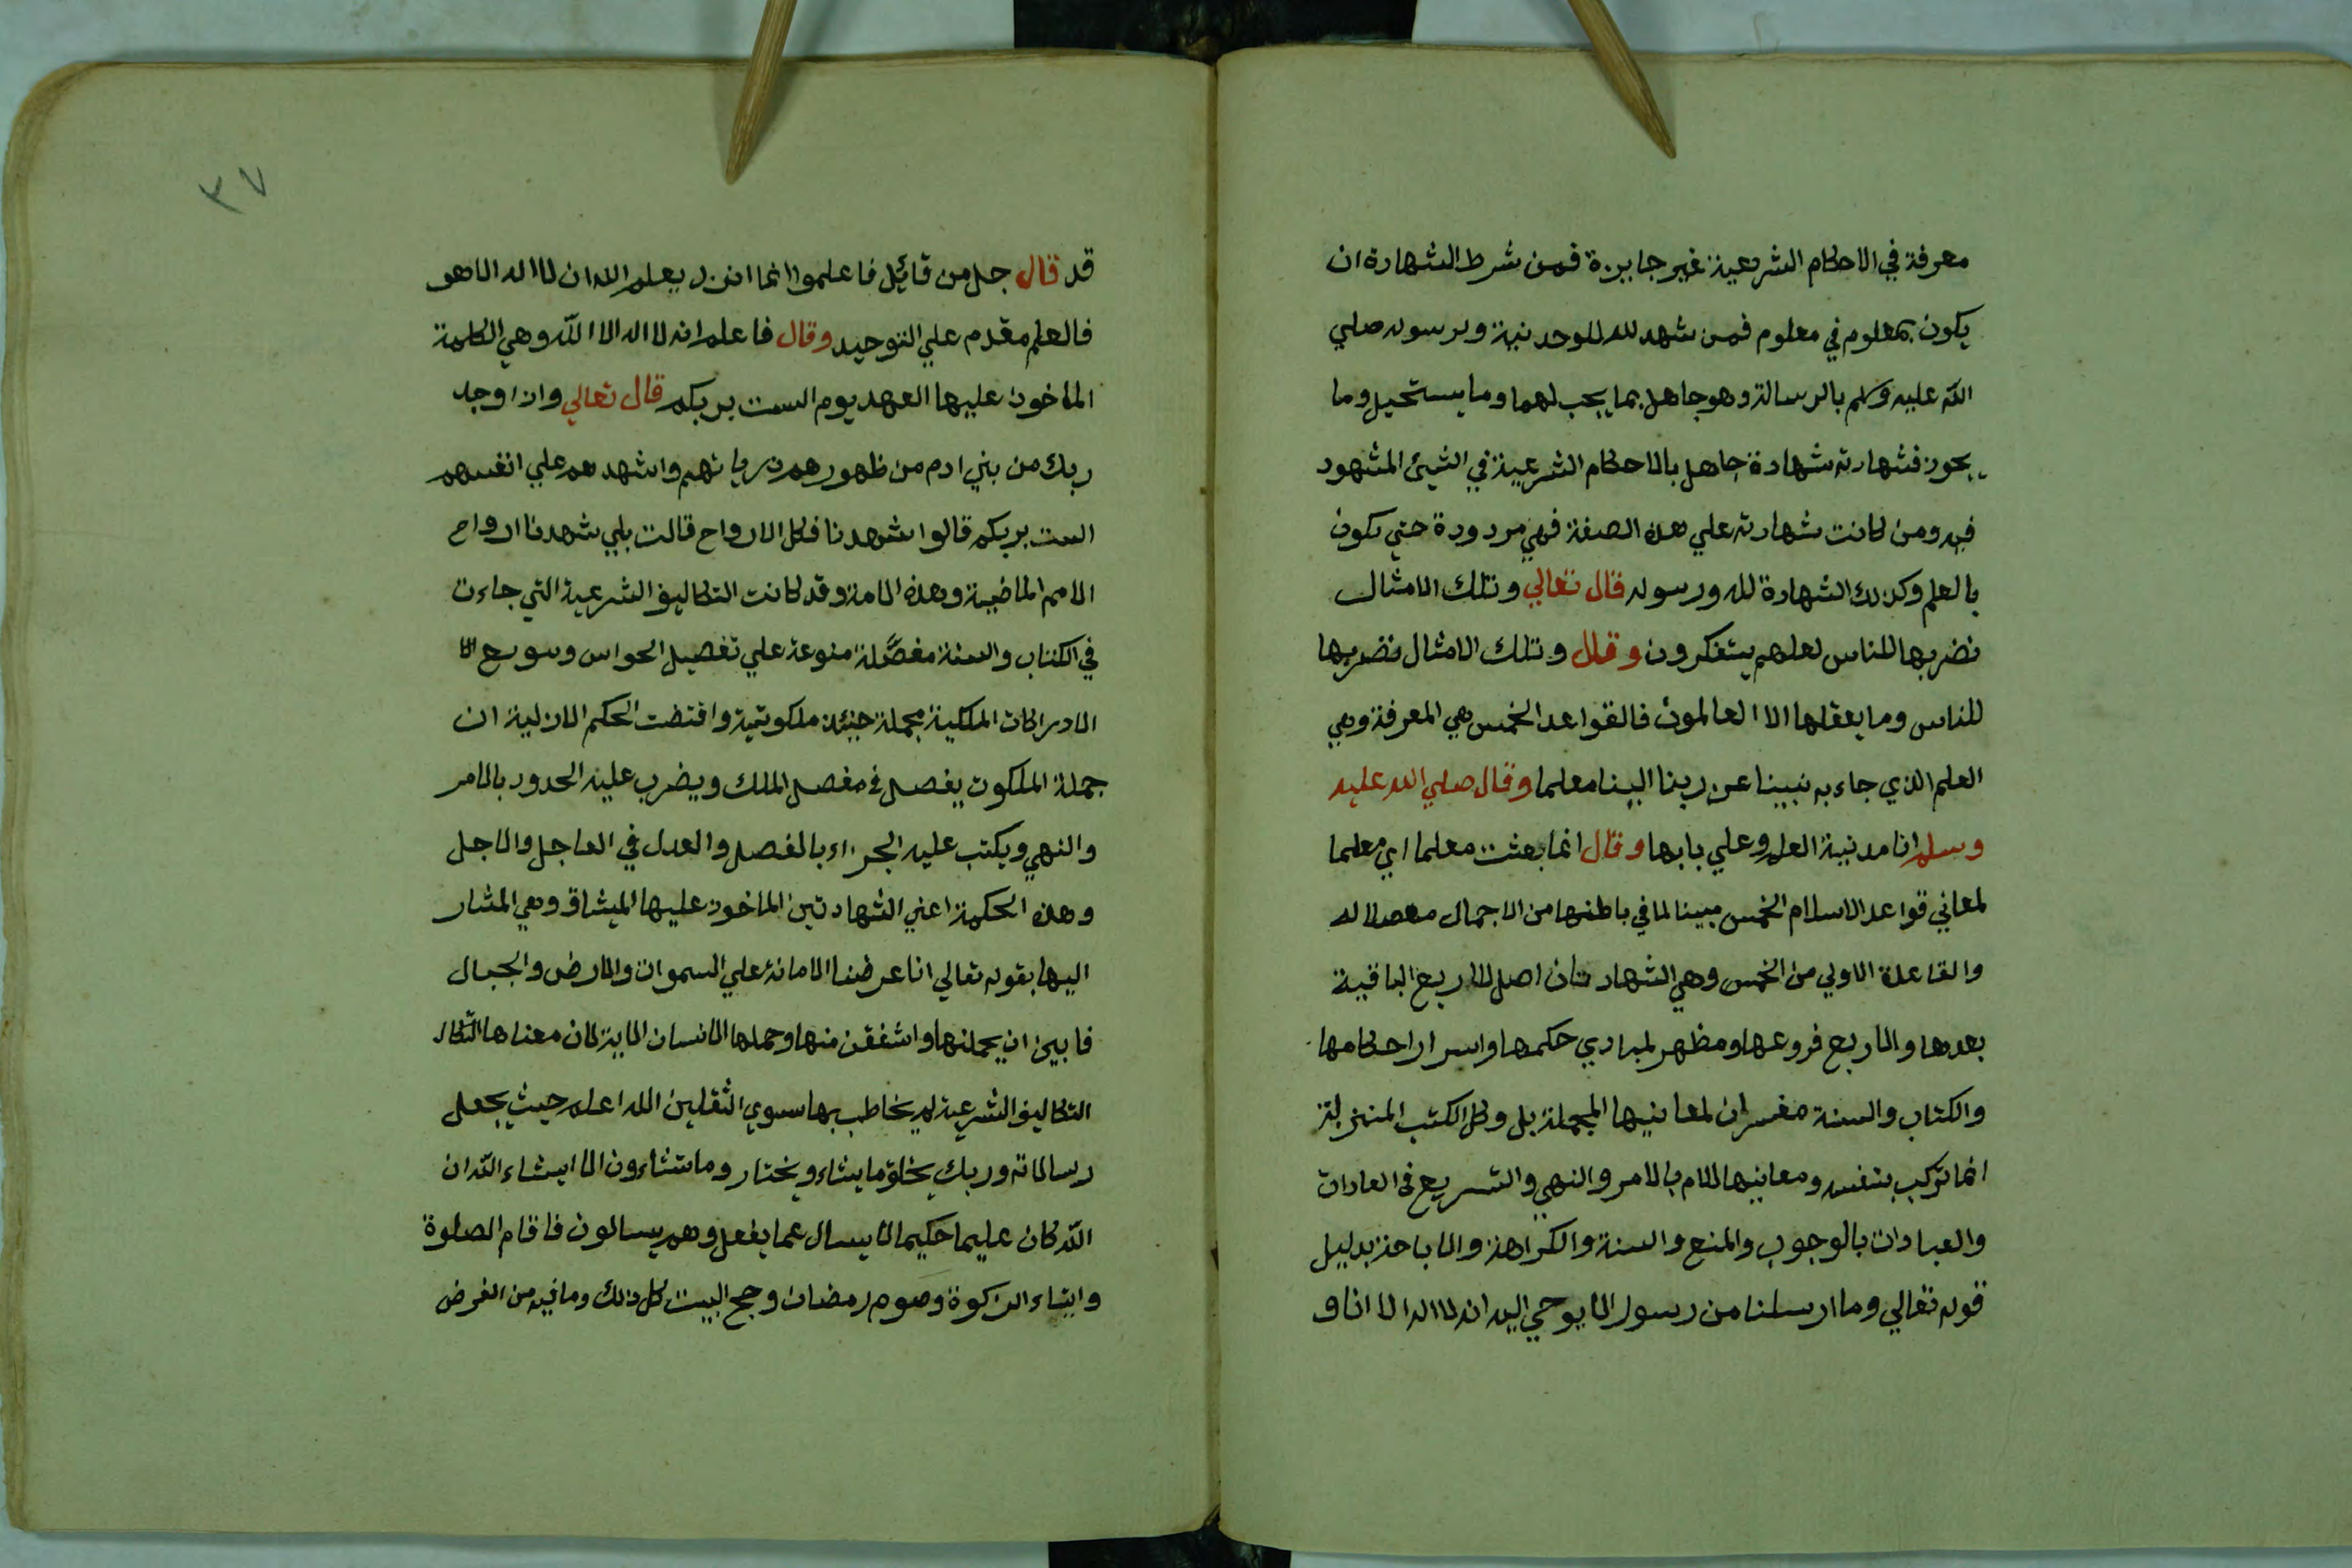 معرفة في الاحكام الشرعية غير جايزة فمن شرط الشهادة ان
يكون بمعلوم في معلوم فمن شهد لله للوحدنية ولرسوله صلي
الله عليه وسلم بالرسالة وهو جاهل بما يجب لهما وما يستحيل وما
يجوز فشهادته شهادة جاهل بالاحكام الشرعية في الشيئ المشهود
فيه ومن كانت شهادته علي هذه الصفة فهي مردودة حتي تكون
بالعلم وكذلك الشهادة لله ورسوله قال تعالي وتلك الامثال
نضربها للناس لعلهم يتفكرون وقال وتلك الامثال نضربها
للناس وما يعقلها الا العالمون فالقواعد الخمس هي المعرفة وهي
العلم الذي جاء به نبينا عن ربنا الينا معلما وقال صلي الله عليه
وسلم انا مدنية العلم وعلي بابها وقال انما بعثت معلما اي معلما
لمعاني قواعد الاسلام الخمس مبينا لما في باطنها من الاجمال مفصلا له
والقاعدة الاولي من الخمس وهي الشهادتان اصل للاربع الباقية
بعدها والاربع فروعها ومظهر لمبادي حكمها واسرار احكامها
والكتاب والسنة مفسران لمعانيها المجملة بل وكل الكتب المنزلة
انما تركب بنفسه ومعانيها للام بالامر والنهي والتسريع في العادات
والعبادات بالوجوب والمنع والسنة والكراهة والاباحة بدليل
قوله تعالي وما ارسلنا من رسول الا يوحي اليه انه لا اله الا انا و
٣٧
قد قال جل من قائل فاعلموا انما انزل بعلم الله ان لا اله الا هو
فالعلم مقدم علي التوحيد وقال فاعلم انه لا اله الا الله وهي الكلمة
الماخوذ عليها العهد يوم الست بربكم قال تعالي واذ اوجد
ربك من بني ادم من ظهورهم ذرياتهم واشهدهم علي انفسهم
الست بربكم قالوا شهدنا فكل الارواح قالت بلي شهدنا ارواح
الامم الماضية وهذه الامة وقد كانت التكاليف الشرعية التي جاءت
في الكتاب والسنة مفصَّلة منوعة علي تفصيل الحواس
الادراكات الملكية مجملة ملكوتية واقتضت الحكم الازلية ان
جملة الملكوت يفصل في مفصل الملك ويضرب عليه الحدود بالامر
والنهي ويكتب عليه الجزاء بالفصل والعدل في العاجل والاجل
وهذه الحكمة اعني الشهادتين الماخوذ عليها الميثاق وهي المشار
اليها بقوله تعالي انا عرضنا الامانة علي السموات والارض والجبال
فابين ان يحملنها واشفقن منها وحملها الانسان الاية لان معناها
التكاليف الشرعية لم يخاطب بها سوي الثقلين الله اعلم حيث يجعل
رسالاته وربك يخلق ما يشاء ويختار وما تشاءون الا ان يشاء الله ان
الله كان عليما حكيما لا يسال عما يفعل وهم يسالون فاقام الصلوة
وايتاء الزكوة وصوم رمضان وحج البيت كل ذلك وما فيه من الفرض